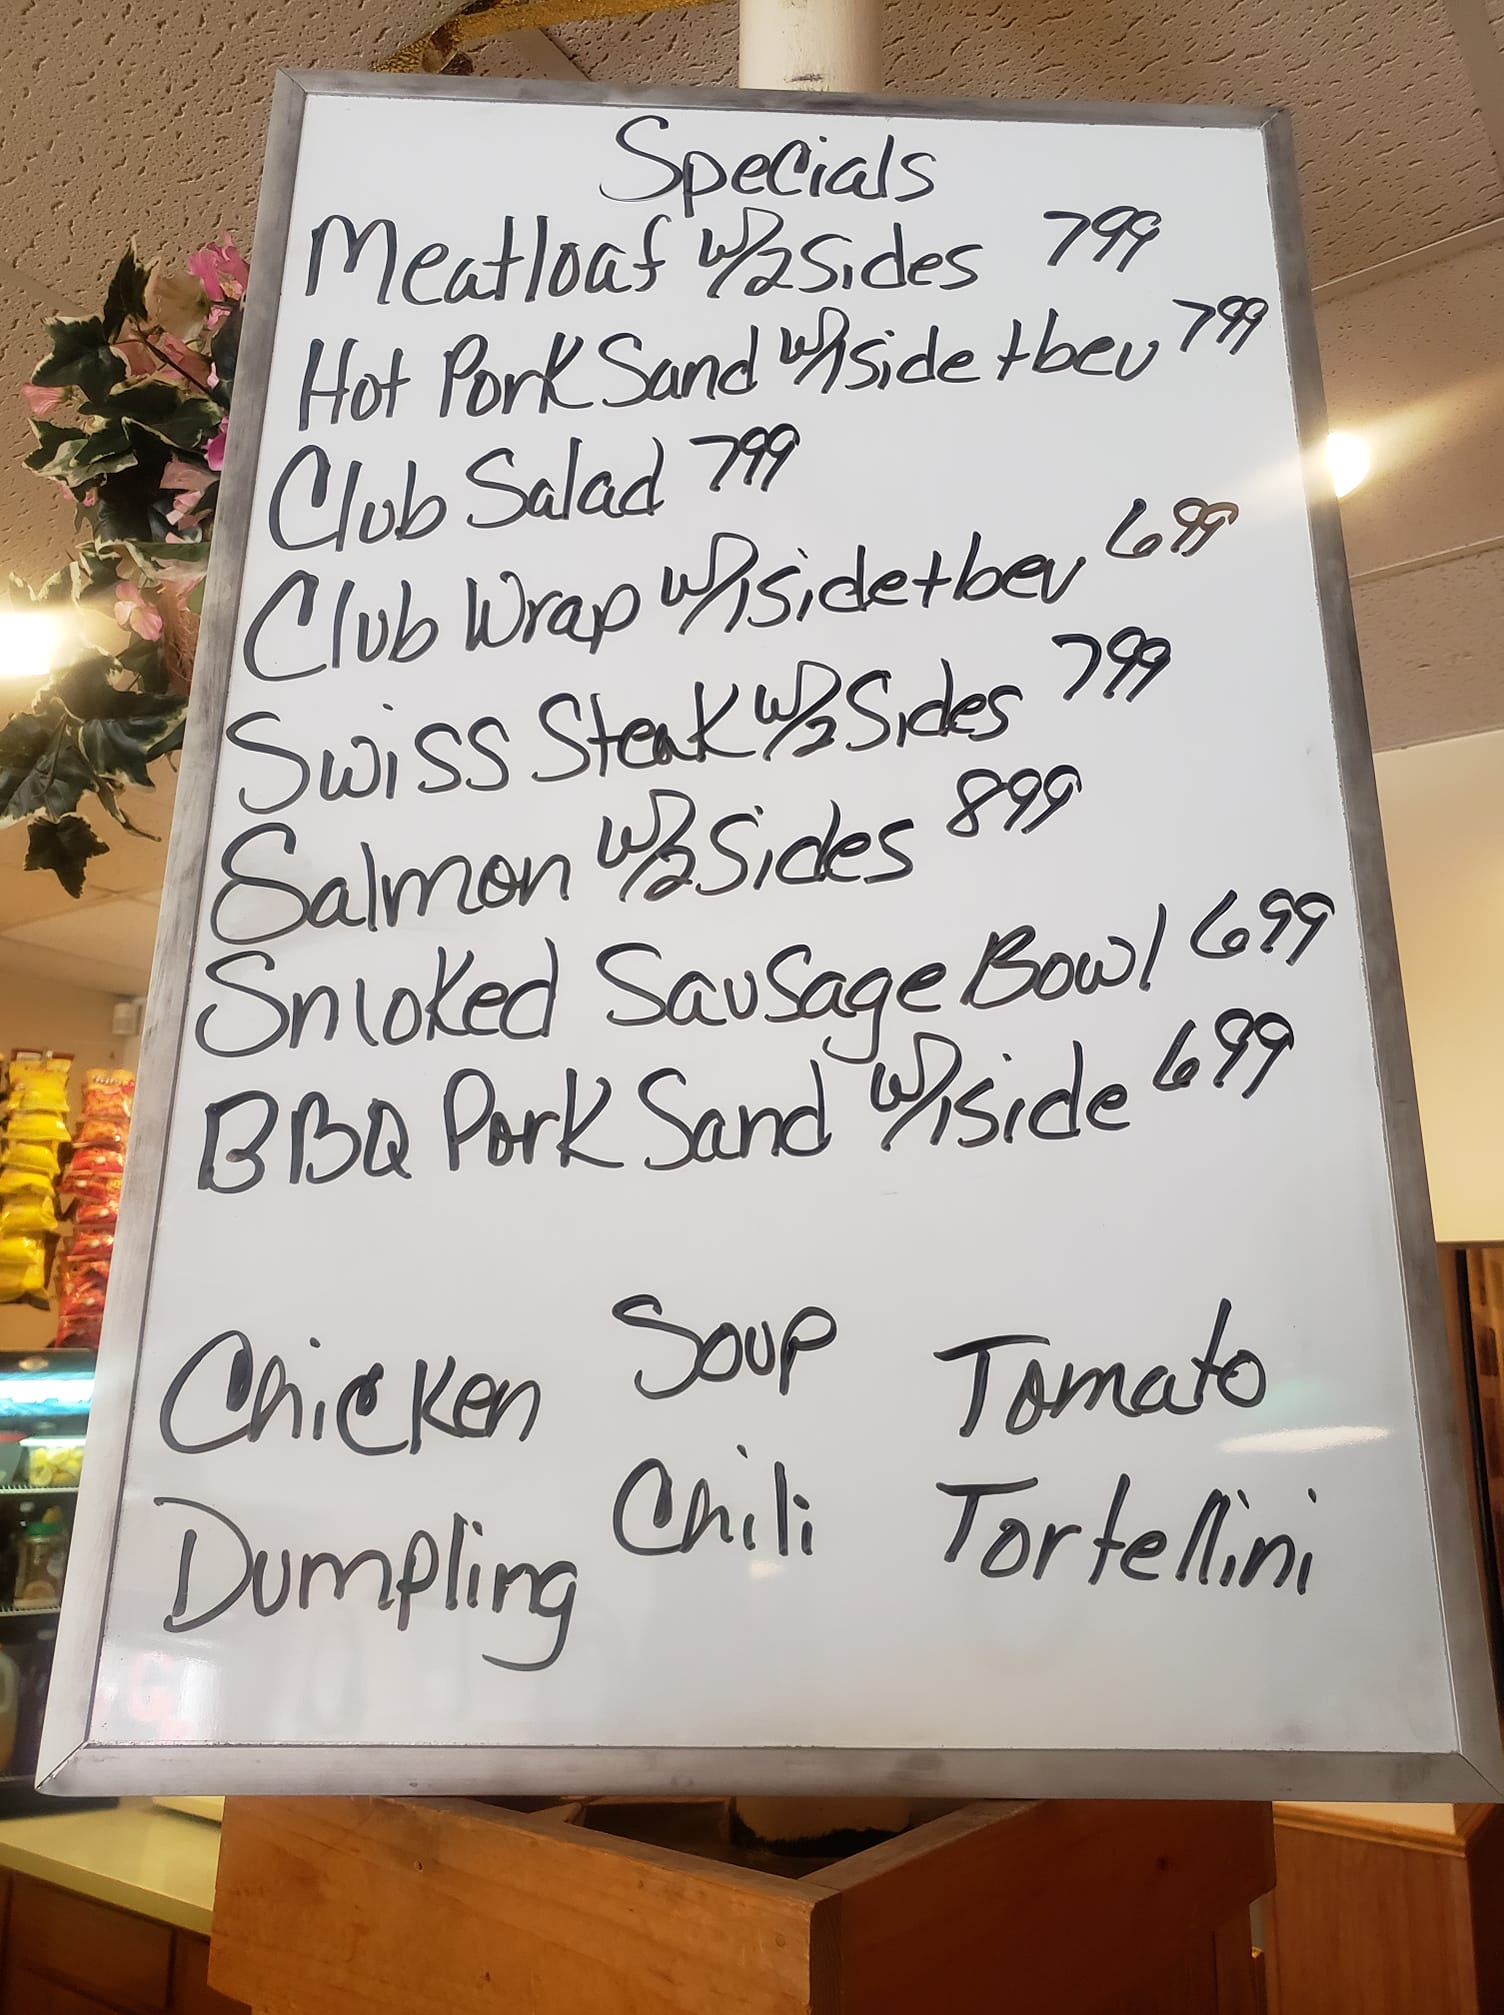 Specials
Meatloaf w/2 Sides 799
Hot Pork Sand w/1 side + bev 799
Club Salad 799
Club Wrap w/1 side + bev 699
Swiss Steak w/2 Sides 799
Salmon w/2 Sides 899
Smoked Sausage Bowl 699
BBQ Pork Sand w/1 side 699
Soup
Chicken Dumpling
Chili
Tomato Tortellini